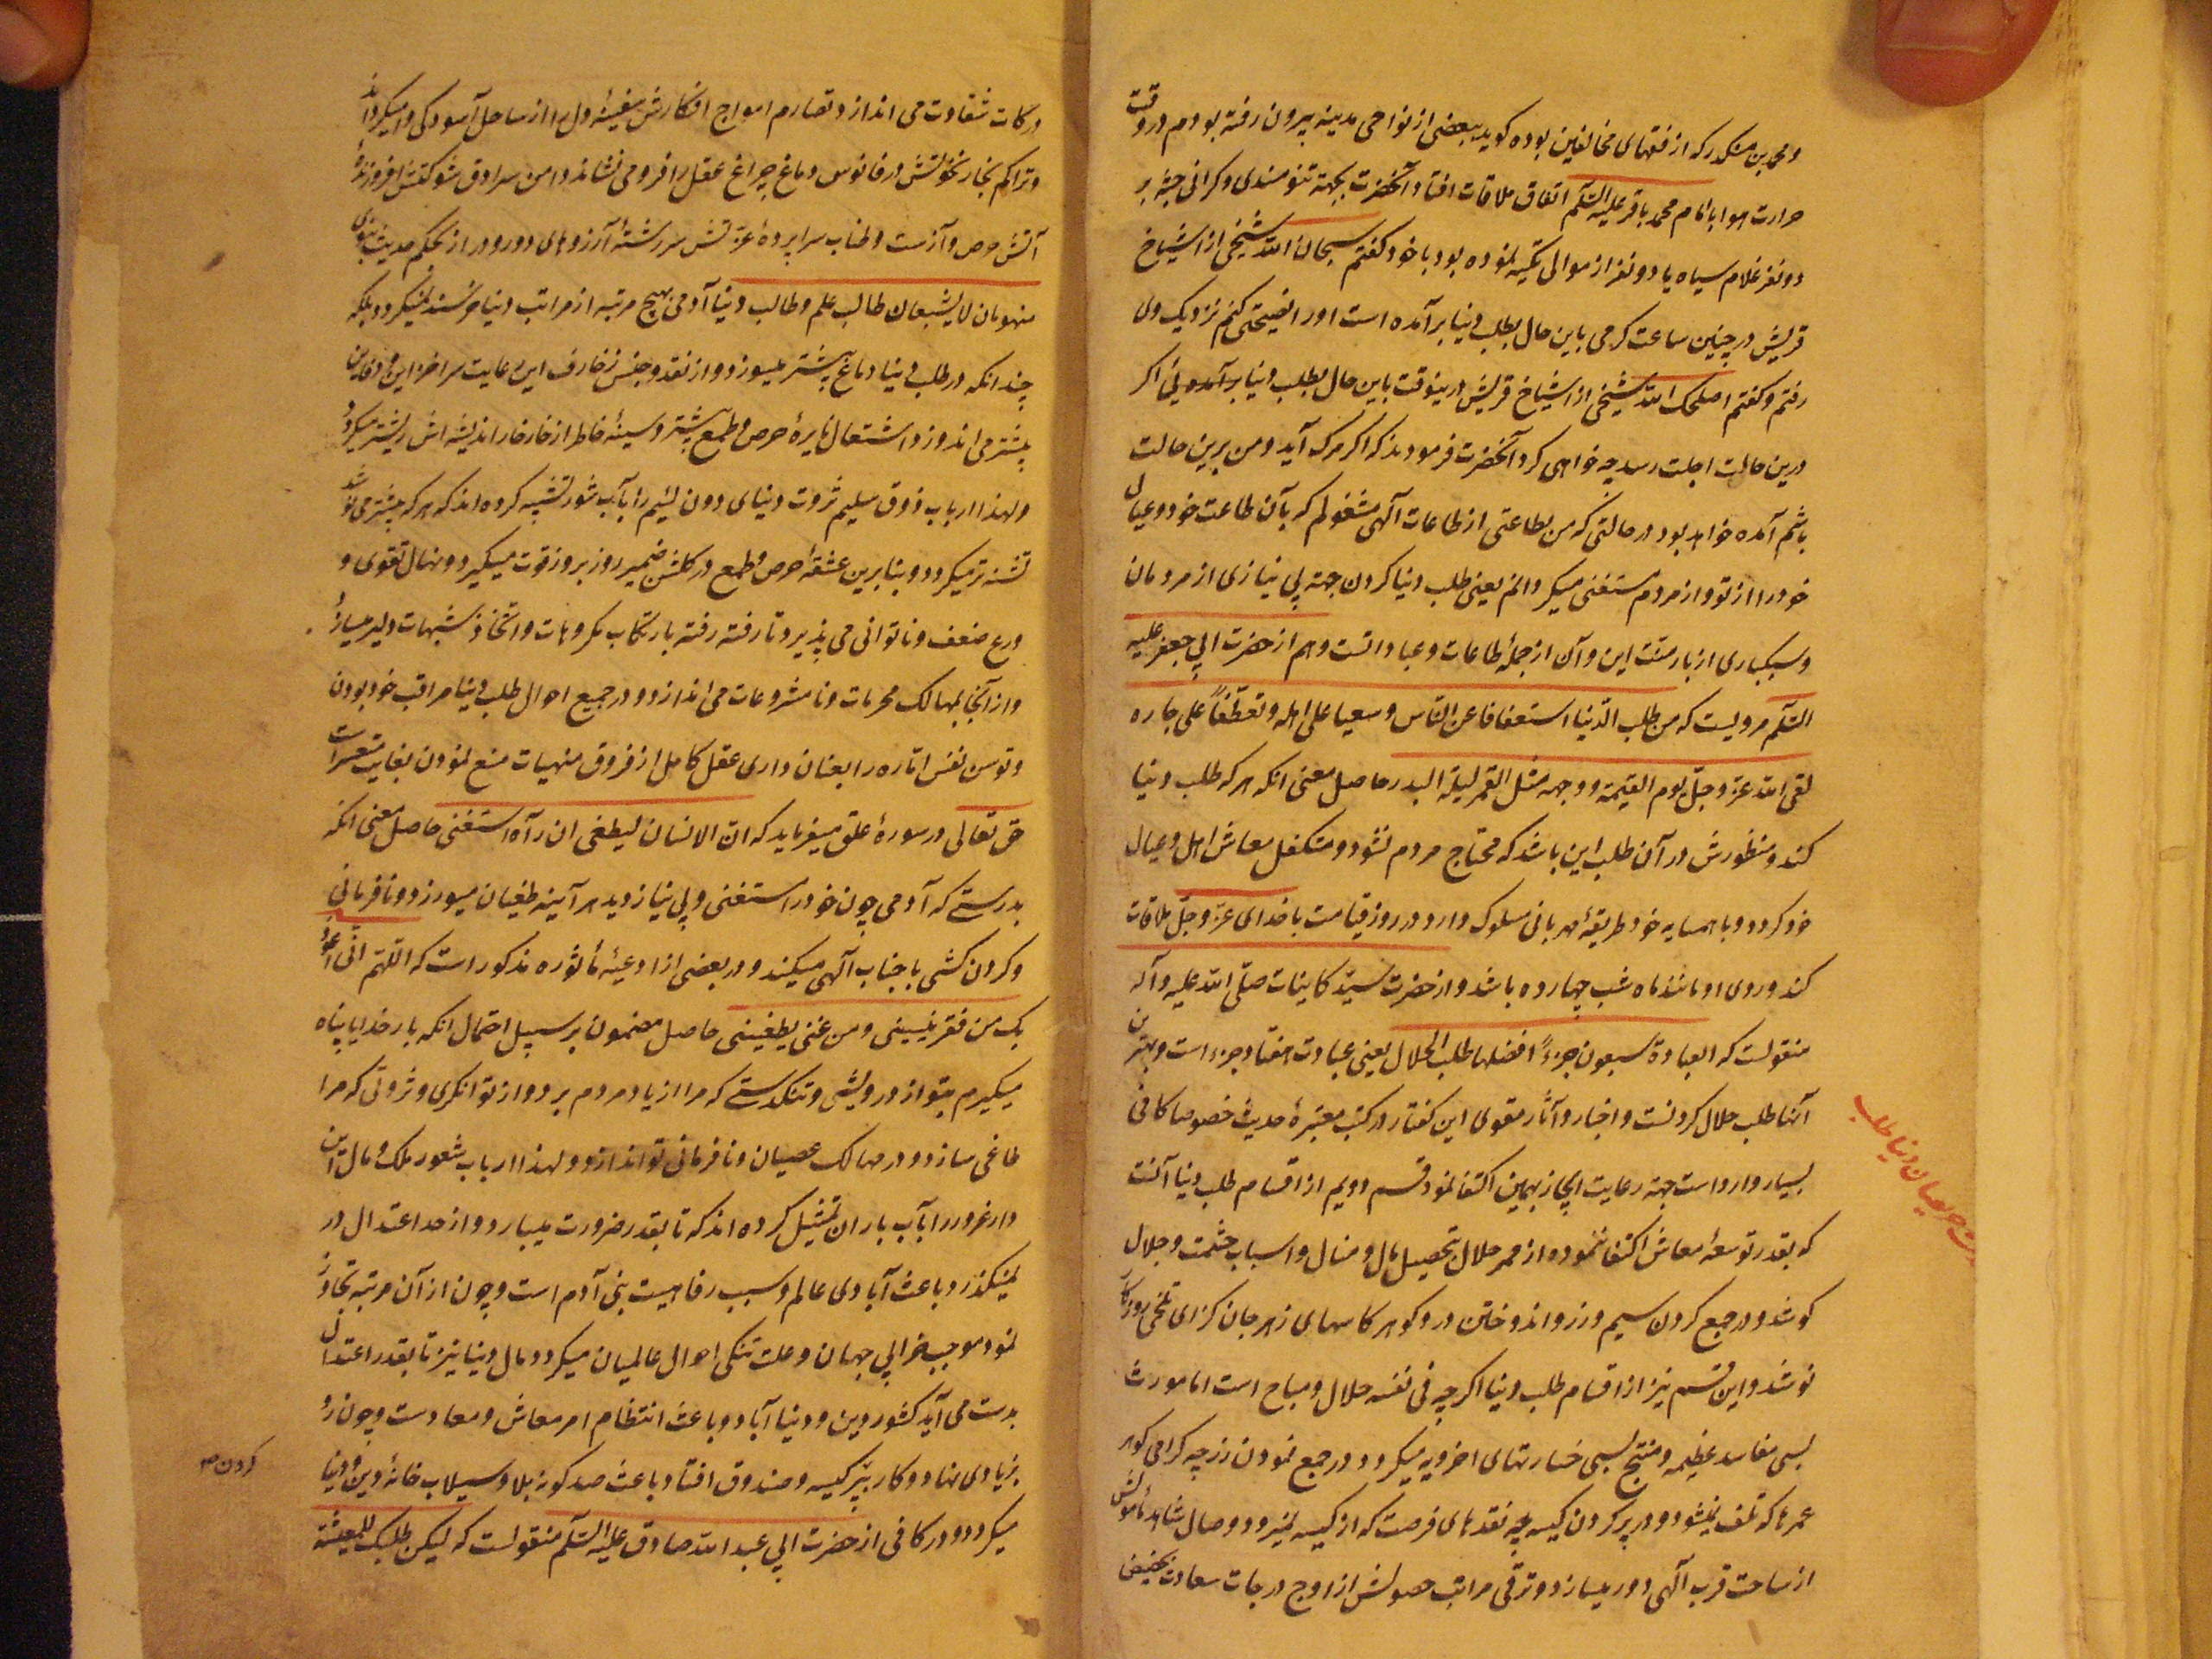 و محمد بن منکدر که از فقهای مخالفین بوده کوید ببعضی از نواحی مدینه بیرون رفته بودم در وقت
حرارت هوا با امام محمد باقر علیه السّلم اتفاق ملاقات افتاد و آنحضرت بجهة تنومندی و کرانی جثه بر
دو نفر غلام سیاه یا دو نفر از موالی تکیه نموده بود با خود کفتم سبحان الله شیخی از اشیاخ
قریش در چنین ساعت کرمی باین حال بطلب دنیا برآمده است او را نصیحتی کنم نزدیک وی
رفتم و کفتم اصلحک الله شیخی از اشیاخ قریش درینوقت باین حال بطلب دنیا برآمده یی اکر
درین حالت اجلت رسد چه خواهی کرد آنحضرت فرمودند که اکر مرک آید و من برین حالت
باشم آمده خواهد بود در حالتی که من بطاعتی از طاعات آلهی مشغولم که بآن طاعت خود و عیال
خود را از تو و از مردم مستغنی میکردانم یعنی طلب دنیا کردن جهة بی نیازی از مردمان
و سبکباری از بار منت این و آن از جملهٔ طاعات و عباداتست و هم از حضرت ابی جعفر علیه
السّلم مرویست که من طلب الدّنیا استعفافا عن النّاس و سعیا علی اهله و تعطّفاً علی جاره
لقی الله عزّ و جلّ یوم القیمة و وجهه مثل القمر لیلة البدر حاصل معنی انکه هر که طلب دنیا
کند و منظورش در آن طلب این باشد که محتاج مردم نشود و متکفل معاش اهل و عیال
خود کردد و با همسایه خود طریقهٔ مهربانی مسلوک دارد در روز قیامت با خدای عزّ و جلّ ملاقات
کند و روی او مانند ماه شب چهارده باشد و از حضرت سیّد کاینات صلّی الله علیه و آله
منقولست که العبادة سبعون جزءً افضلها طلب الحلال یعنی عبادت هفتاد جزء است و بهترین
آنها طلب حلال کردنست و اخبار و آثار مقوی این کفتار در کتب معتبرهٔ حدیث خصوصا کافی
بسیار وارد است جهة رعایت ایجاز بهمین اکتفا نمود قسم دویم از اقسام طلب دنیا آنست
که بقدر توسعهٔ معاش اکتفا ننموده از ممر حلال بتحصیل مال و منال و اسباب حشمت و جلال
کوشد و در جمع کردن سیم و زر و اندوختن در و کوهر کاسهای زهر جان کزای تلخی روزکار
نوشد و این قسم نیز از اقسام طلب دنیا اکرچه فی نفسه حلال و مباح است اما مورث
بسی مفاسد عظیمه و منتج بسی خسارتهای اخرویه میکردد در جمع نمودن زر چه کرامی کوهر
عمرها که تلف نمیشود و در پر کردن کیسه چه نقدهای فرصت که از کیسه نمیرود وصال شاهد مأمولش
از ساحت قرب آلهی دور میسازد و ترقی مراتب حصولش از اوج درجات سعادت بحضیض
حریصان دنیا طلب
درکات شقاوت می اندازد تصادم امواج افکارش سفینهٔ دل را از ساحل آسودکی وا میکرداند
و تراکم بخار نخوتش در فانوس دماغ چراغ عقل را فرو می نشاند دامن سرادق شوکتش افروزندهٔ
آتش حرص و آزست و طناب سراپردهٔ عزتش سررشتهٔ آرزوهای دور و دراز بحکم حدیث نبوی
منهومان لا یشبعان طالب علم و طالب دنیا آدمی بهیچ مرتبه از مراتب دنیا خرسند نمیکردد بلکه
چندانکه در طلب دنیا دماغ بیشتر میسوزد و از نقد و جنس زخارف این عاریت سرا خزاین و دفاین
بیشتر می اندوزد اشتعال نایرهٔ حرص و طمع بیشتر و سینهٔ خاطر از خارخار اندیشه اش ریشتر میکردد
و لهذا ارباب ذوق سلیم ثروت دنیای دون لئیم را بآب شور تشبیه کرده اند که هر که بیشتر می نوشد
تشنه تر میکردد و بنابرین عشقهٔ حرص و طمع در کلشن ضمیر روز بروز قوت میکیرد و نهال تقوی و
ورع ضعف و ناتوانی می پذیرد تا رفته رفته بارتکاب مکروهات و اتخاذ شبهات دلیر میسازد
و از آنجا بمهالک محرمات و نامشروعات می اندازد و در جمیع احوال طلب دنیا مراقب خود بودن
و توسن نفس امّاره را بعنان داری عقل کامل از فروق منهیات منع نمودن بغایت متعسر است
حق تعالی در سورهٔ علق میفرماید که انّ الانسان لیطغی ان رآه استغنی حاصل معنی انکه
بدرستی که آدمی چون خود را مستغنی و بی نیاز دید هر آینه طغیان میورزد و نافرمانی
و کردن کشی با جناب آلهی میکند و در بعضی از ادعیهٔ مأثوره مذکور است که اللّهم انّی اعوذ
بک من فقر ینسینی و من غنی یطغینی حاصل مضمون بر سبیل احتمال انکه بار خدایا پناه
میکیرم بتو از درویشی و تنکدستی که مرا از یاد مردم برد و از توانکری و ثروتی که مرا
طاغی سازد و در مهالک عصیان و نافرمانی تو اندازد و لهذا ارباب شعور ملک و مال این
دار غرور را بآب باران تمثیل کرده اند که تا بقدر ضرورت میبارد و از حد اعتدال در
نمیکذرد باعث آبادی عالم و سبب رفاهیت بنی آدم است و چون از آن مرتبه تجاوز
نمود موجب خرابی جهان و علت تنکی احوال عالمیان میکردد مال دنیا نیز تا بقدر اعتدال
بدست می آید کشور دین و دنیا آباد و باعث انتظام امر معاش و معادست و چون رو
بزیادی نهاد و کار بپر کیسه و صندوق افتاد باعث صد کونه بلا و سیلاب خانهٔ دین و دنیا
کردن
میکردد و در کافی از حضرت ابی عبد الله صادق علیه السّلم منقولست که لیکن طلبک للمعیشة